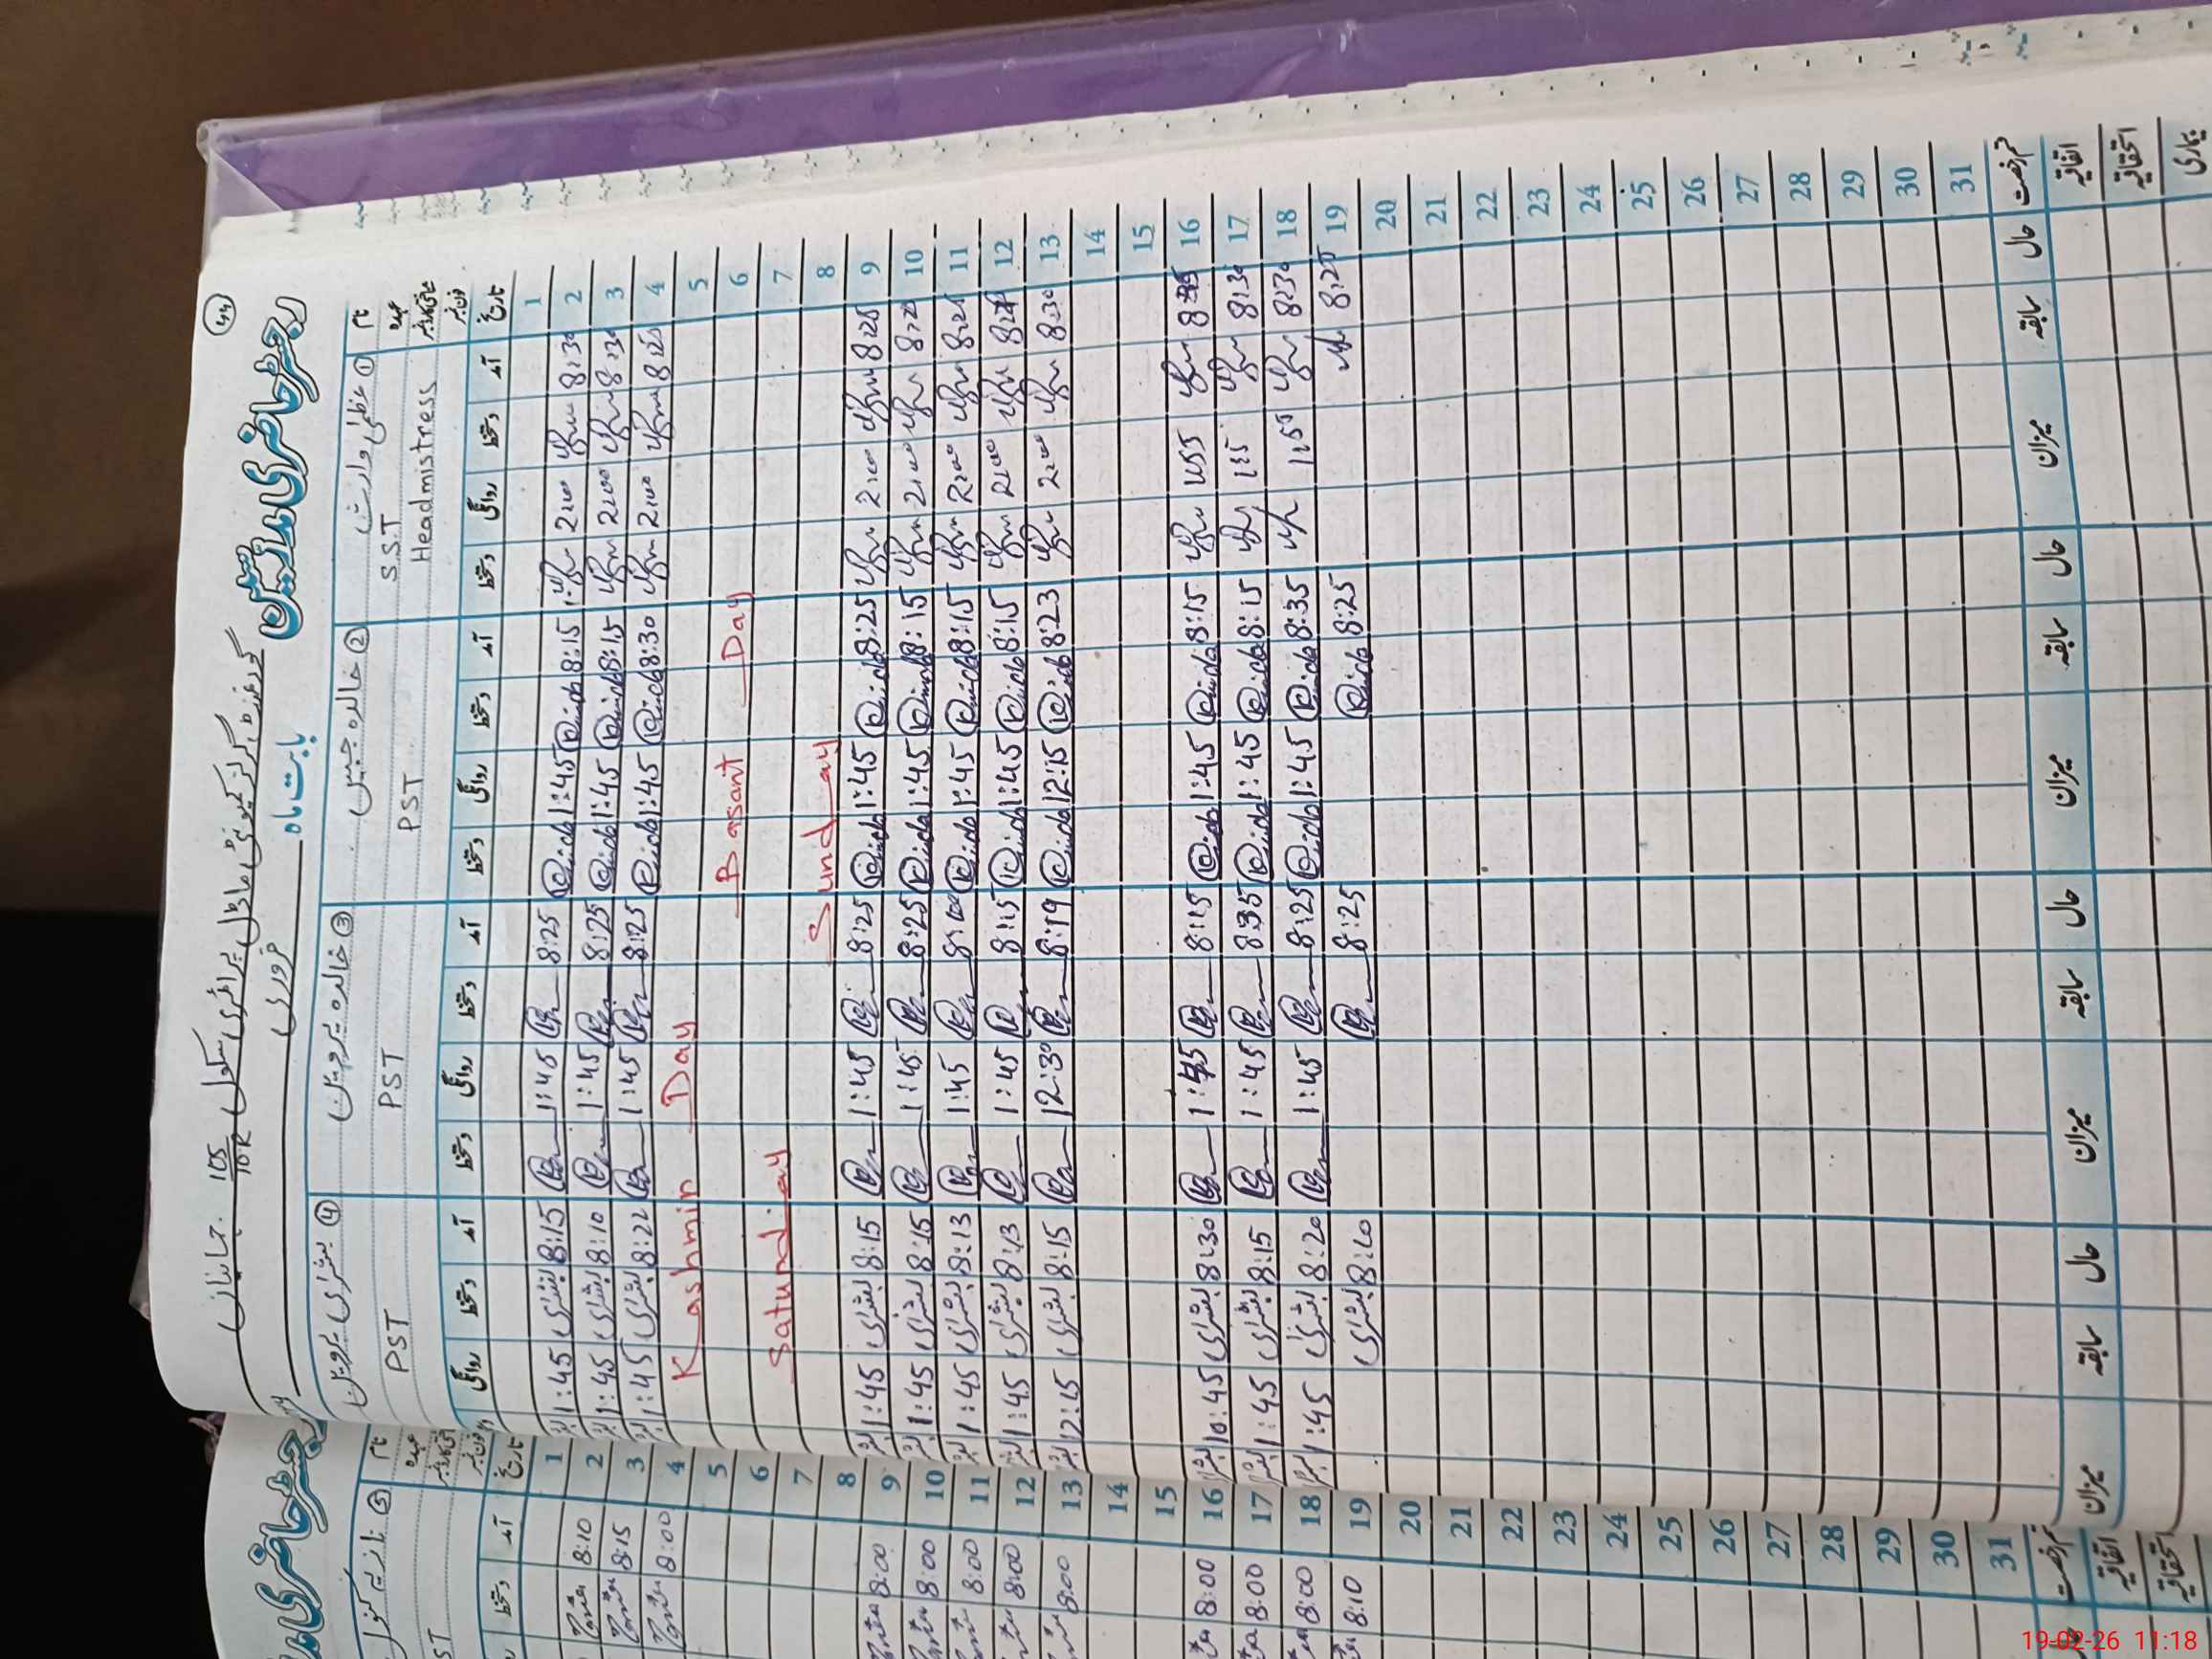 رجسٹر حاضری مدرسین
گورنمنٹ گرلز کمیونٹی ماڈل پرائمری سکول 105/10R جہانیاں
بابت ماہ فروری
نام ① عظمیٰ وارث ② خالدہ جبیں ③ خالدہ پروین ④ بشریٰ پروین
عہدہ S.S.T PST PST PST
Headmistress
تاریخ آمد دستخط روانگی دستخط آمد دستخط روانگی دستخط آمد دستخط روانگی دستخط آمد دستخط روانگی
1
2 8:30 2:00 8:15 1:45 8:25 1:45 8:15 بشریٰ 1:45
3 8:30 2:00 8:15 1:45 8:25 1:45 8:10 بشریٰ 1:45
4 8:25 2:00 8:30 1:45 8:25 1:45 8:22 بشریٰ 1:45
5 Kashmir Day
6 Basant Day
7 Saturday
8 Sunday
9 8:25 2:00 8:25 1:45 8:25 1:45 8:15 بشریٰ 1:45
10 2:00 8:15 1:45 8:25 1:45 8:15 بشریٰ 1:45
11 8:25 2:00 8:15 1:45 8:00 1:45 8:13 بشریٰ 1:45
12 2:00 8:15 1:45 8:15 1:45 8:13 بشریٰ 1:45
13 8:30 2:00 8:23 12:15 8:19 12:30 8:15 بشریٰ 12:15
14
15
16 1:55 8:15 1:45 8:15 1:45 8:30 بشریٰ 10:45
17 8:30 8:15 1:45 8:35 1:45 8:15 بشریٰ 1:45
18 8:30 1:55 8:35 1:45 8:25 1:45 8:20 بشریٰ 1:45
19 8:25 8:25 8:25 بشریٰ
20
21
22
23
24
25
26
27
28
29
30
31
قسم رخصت حال سابقہ میزان حال سابقہ میزان حال سابقہ میزان حال سابقہ میزان
اتفاقیہ
استحقاقیہ
بیماری
رجسٹر حاضری
نام ⑤ نازیہ کنول
عہدہ
تاریخ آمد دستخط
1
2 8:10
3 8:15
4 8:00
5
6
7
8
9 8:00
10 8:00
11 8:00
12 8:00
13 8:00
14
15
16 8:00
17 8:00
18 8:00
19 8:10
20
21
22
23
24
25
26
27
28
29
30
31
قسم رخصت
اتفاقیہ
استحقاقیہ
19-02-26 11:18